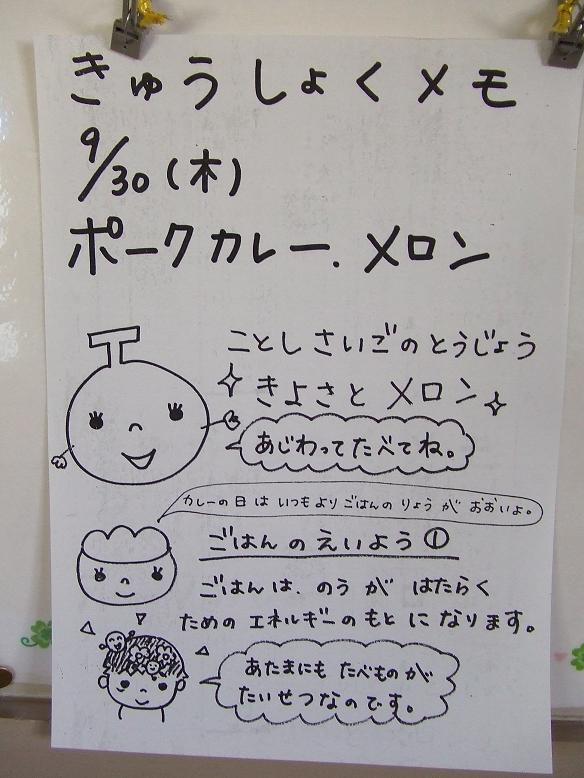 きゅうしょくメモ
9/30(木)
ポークカレー.メロン
ことしさいごのとうじょう
きよさとメロン
あじわってたべてね。
カレーの日はいつもよりごはんのりょうがおおいよ。
ごはんのえいよう①
ごはんは、のうがはたらく
ためのエネルギーのもとになります。
あたまにもたべものが
たいせつなのです。